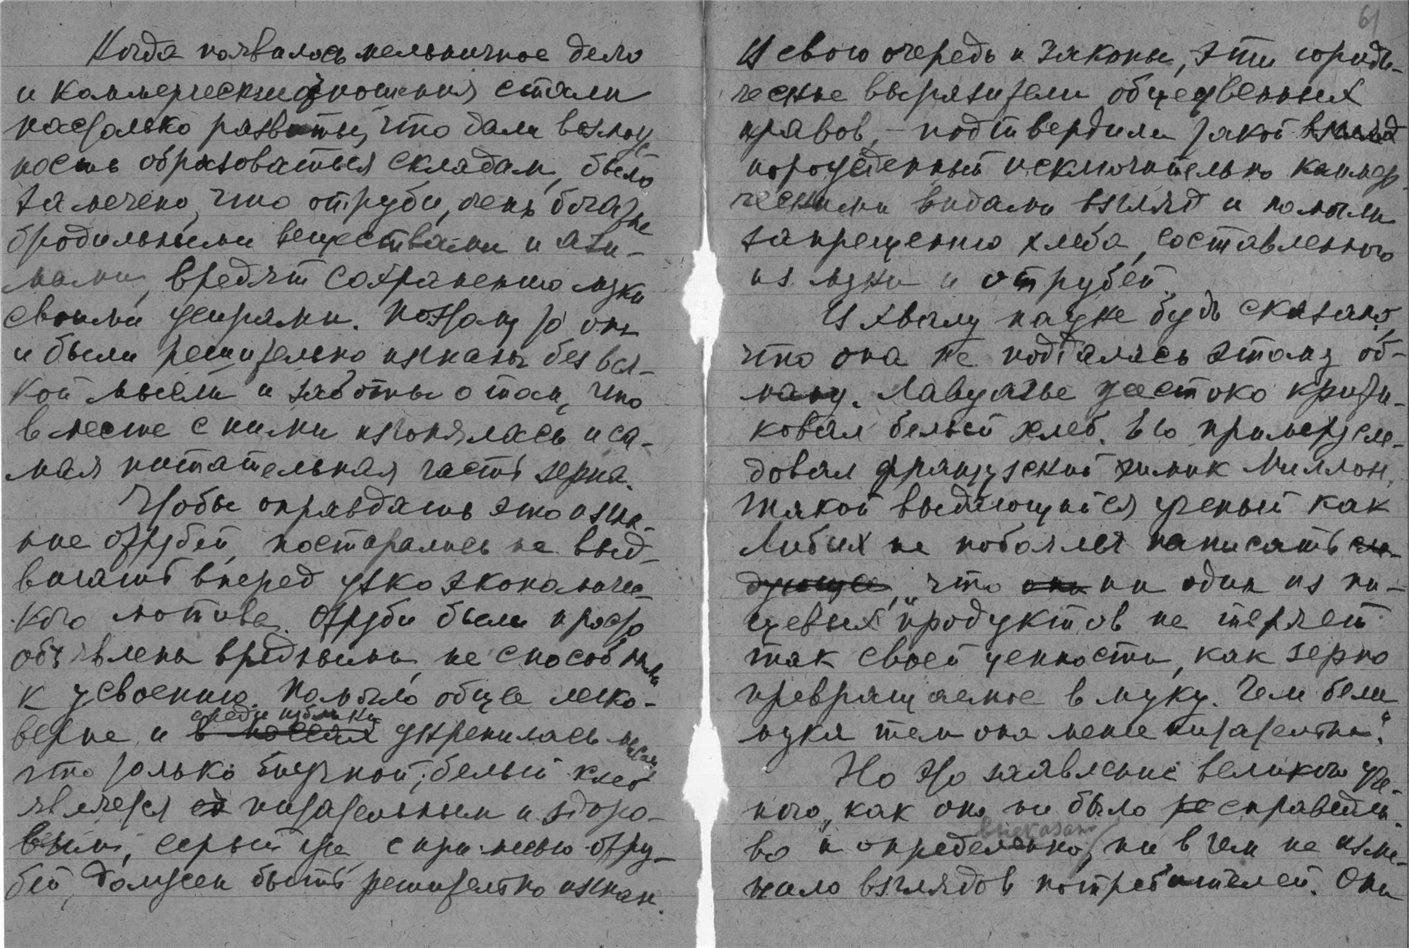 Когда появилось мельничное дело
и коммерческие отношения стали
настолько развиты, что дали возмож
ность образоваться складам, было
замечено, что отруби, очень богатые
бродильными веществами и энзи-
мами, вредят сохранению муки
своими усиками. Поэтому то они
и были решительно изгнаны без вся-
кой мысли и заботы о том, что
вместе с ними изгонялась и са-
мая питательная часть зерна.
Чтобы оправдать это изгна-
ние отрубей, постарались не выд-
вигать вперед узко экономичес-
кого мотива. Отруби были просто
объявлены вредными, не способными
к усвоению. Помогло общее легко-
верие и среди публики укрепилась мысль
что только бездрожжной, белый хлеб
является питательным и здоро-
вым, серый же с примесью отру-
бей, должен быть решительно изгнан.
61
В свою очередь и законы, эти юриди-
ческие выразители общественных
нравов, – подтвердили такой
порожденный исключительно коммер-
ческими видами взгляд и помогли
запрещению хлеба, составленного
из муки и отрубей.
В хвалу науке будь сказано,
что она не поддалась этому об-
ману. Лавуазье жестоко крити-
ковал белый хлеб. Его примеру сле-
довал французский химик Миллон.
Такой выдающийся ученый как
Либих не побоялся написать сле-
дующее, "что они ни один из пи-
щевых продуктов не теряет
так своей ценности, как зерно
превращаемое в муку. Чем белей
мука тем она менее питательна".
Но это заявление великого уче-
ного, как оно ни было справедли-
во и определенно высказано, ни в чем не изме-
нило взглядов потребителей. Они